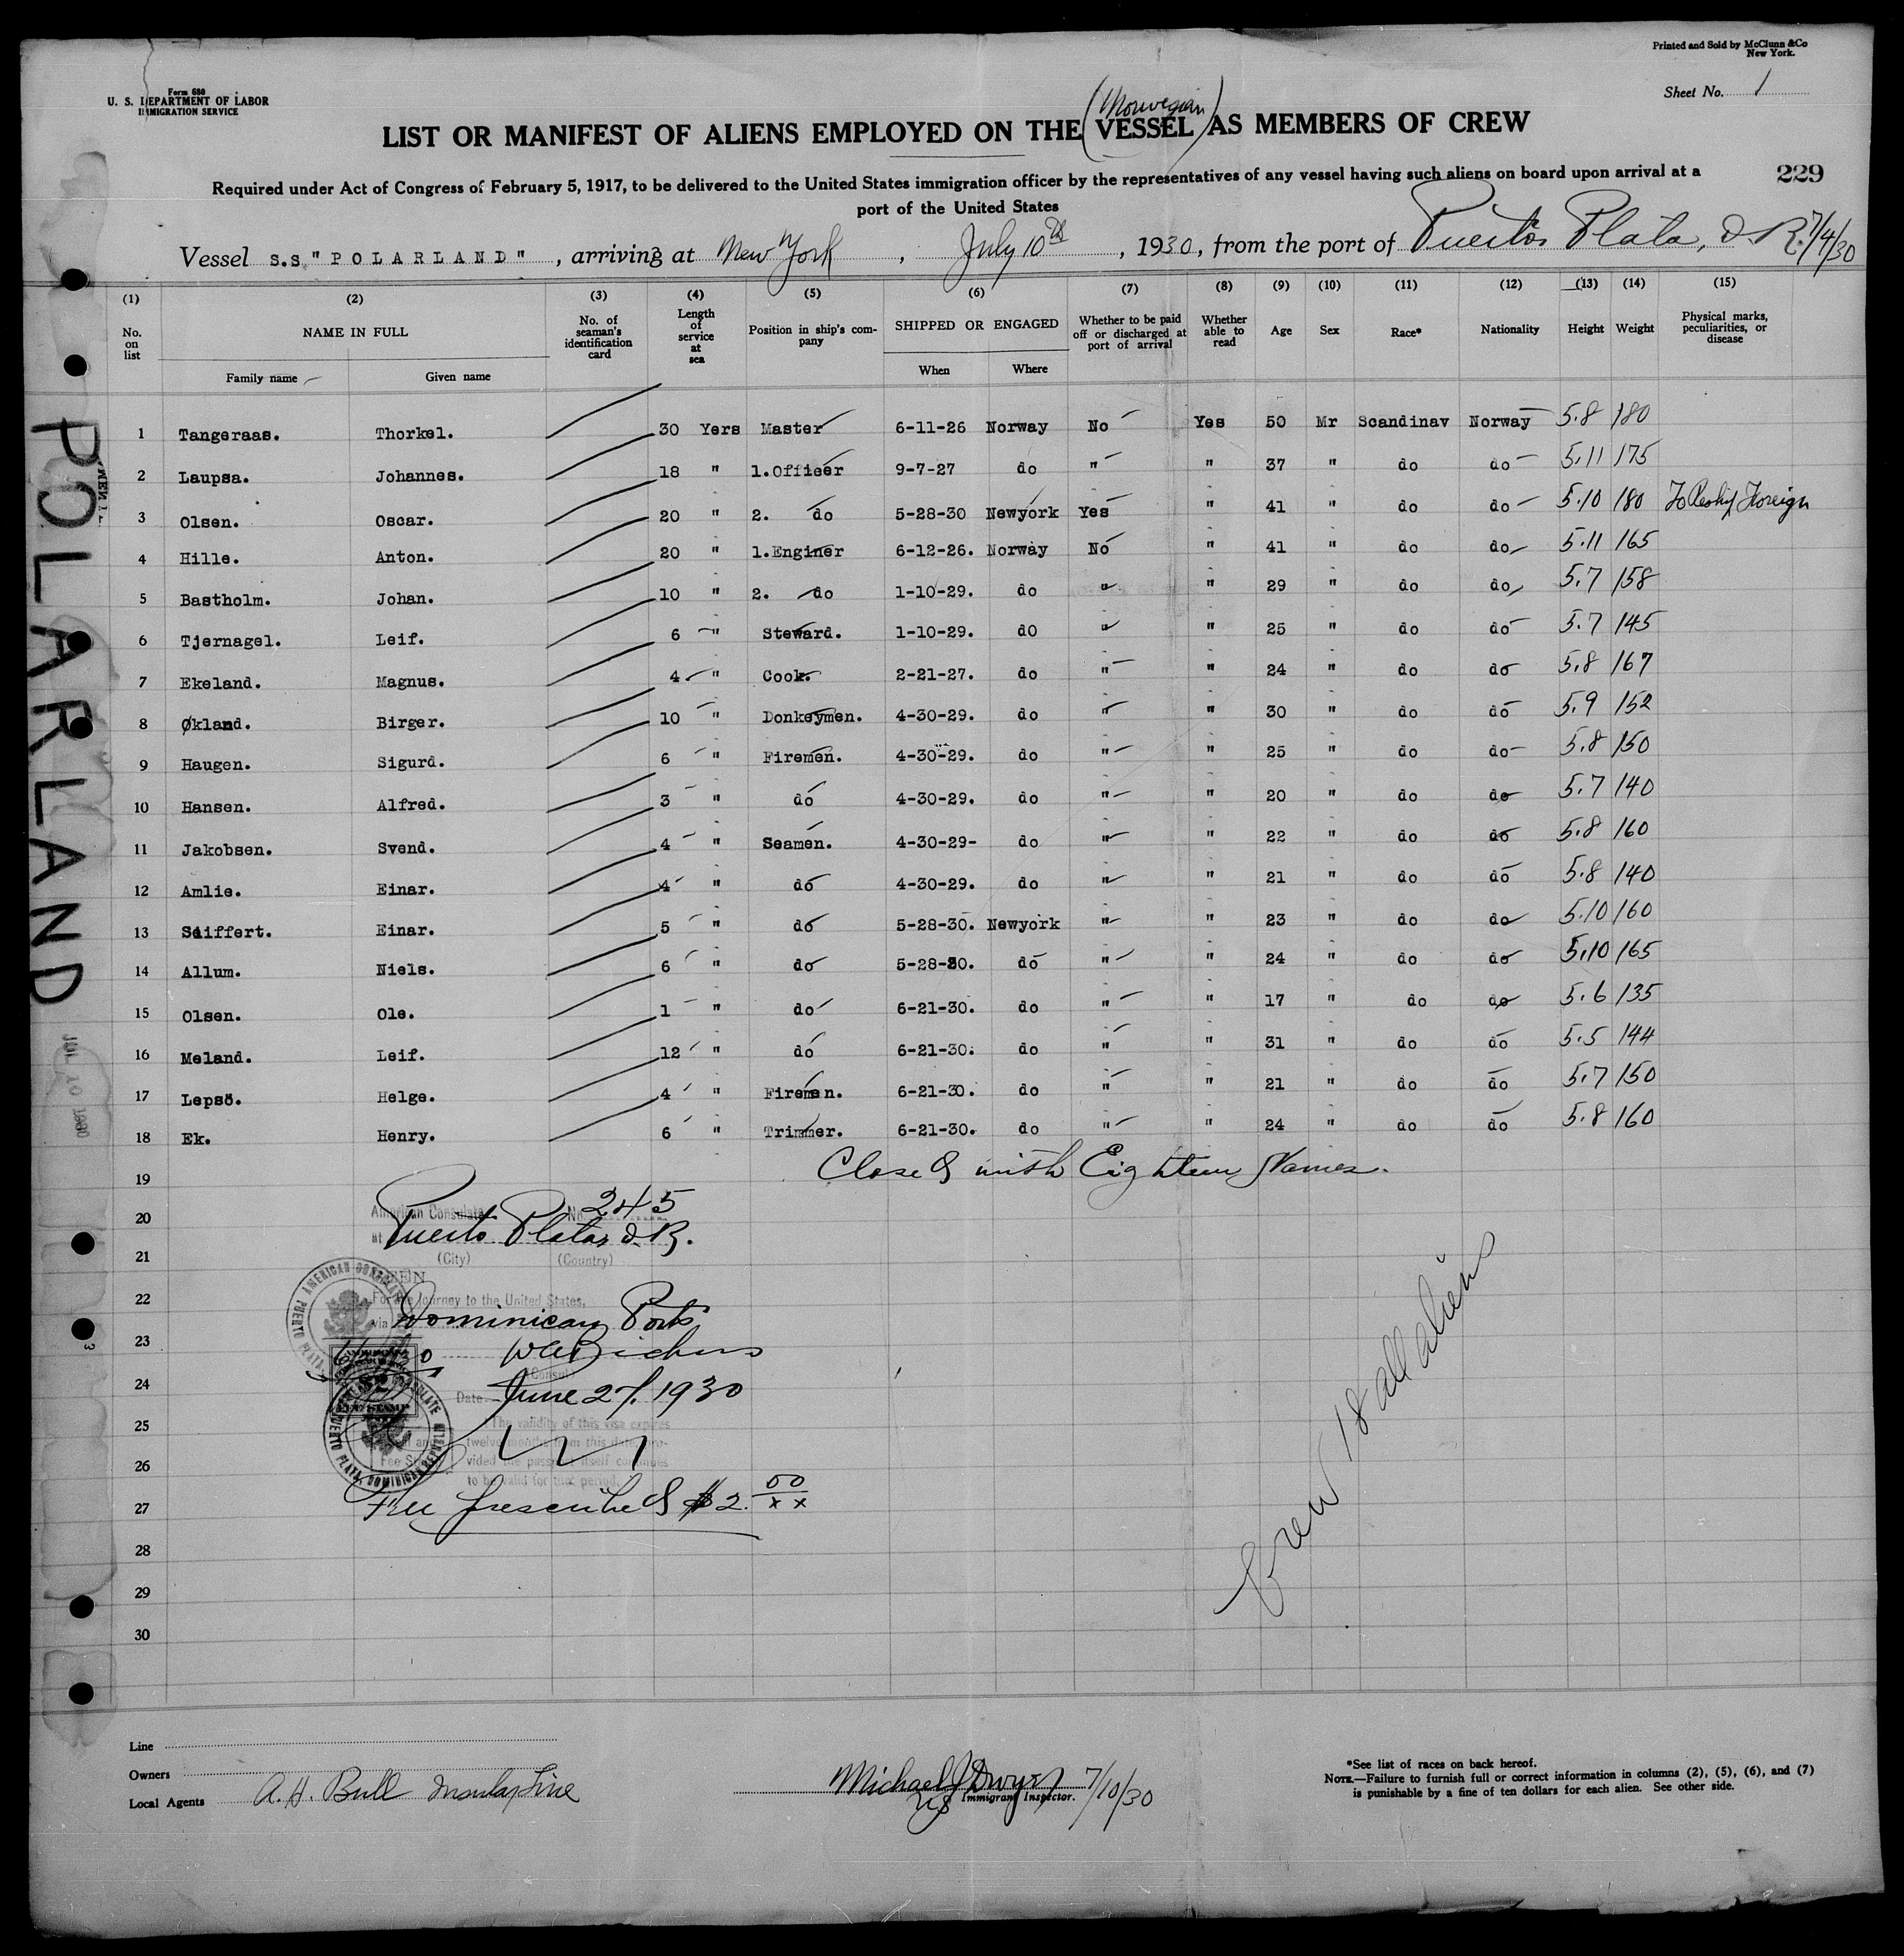 Printed and Sold by McClunn & Co
New York.
Form 680
U. S. DEPARTMENT OF LABOR
IMMIGRATION SERVICE
Sheet No. 1
(Norwegian)
LIST OR MANIFEST OF ALIENS EMPLOYED ON THE VESSEL AS MEMBERS OF CREW
229
Required under Act of Congress of February 5, 1917, to be delivered to the United States immigration officer by the representatives of any vessel having such aliens on board upon arrival at a
port of the United States
Vessel s.s "POLARLAND", arriving at New York, July 10th, 1930, from the port of Puerto Plata, D.R. 7/4/30
(1) (2) (3) (4) (5) (6) (7) (8) (9) (10) (11) (12) (13) (14) (15)
No. on list NAME IN FULL No. of seaman's identification card Length of service at sea Position in ship's company SHIPPED OR ENGAGED Whether to be paid off or discharged at port of arrival Whether able to read Age Sex Race* Nationality Height Weight Physical marks, peculiarities, or disease
Family name Given name When Where
1 Tangeraas. Thorkel. 30 Yers Master 6-11-26 Norway No Yes 50 Mr Scandinav Norway 5.8 180
2 Laupsa. Johannes. 18 " 1.Officer 9-7-27 do " " 37 " do do 5.11 175
3 Olsen. Oscar. 20 " 2. do 5-28-30 Newyork Yes " 41 " do do 5.10 180 To Reship Foreign
4 Hille. Anton. 20 " 1.Enginer 6-12-26. Norway No " 41 " do do 5.11 165
5 Bastholm. Johan. 10 " 2. do 1-10-29. do " " 29 " do do 5.7 158
6 Tjernagel. Leif. 6 " Steward. 1-10-29. do " " 25 " do do 5.7 145
7 Ekeland. Magnus. 4 " Cook. 2-21-27. do " " 24 " do do 5.8 167
8 Økland. Birger. 10 " Donkeymen. 4-30-29. do " " 30 " do do 5.9 152
9 Haugen. Sigurd. 6 " Firemen. 4-30-29. do " " 25 " do do 5.8 150
10 Hansen. Alfred. 3 " do 4-30-29. do " " 20 " do do 5.7 140
11 Jakobsen. Svend. 4 " Seamen. 4-30-29- do " " 22 " do do 5.8 160
12 Amlie. Einar. 4 " do 4-30-29. do " " 21 " do do 5.8 140
13 Seiffert. Einar. 5 " do 5-28-30. Newyork " " 23 " do do 5.10 160
14 Allum. Niels. 6 " do 5-28-30. do " " 24 " do do 5.10 165
15 Olsen. Ole. 1 " do 6-21-30. do " " 17 " do do 5.6 135
16 Meland. Leif. 12 " do 6-21-30. do " " 31 " do do 5.5 144
17 Lepsö. Helge. 4 " Firemen. 6-21-30. do " " 21 " do do 5.7 150
18 Ek. Henry. 6 " Trimmer. 6-21-30. do " " 24 " do do 5.8 160
19 Closed with Eighteen Names.
20
21
22
23
24
25
26
27
28
29
30
American Consulate No. 245
at Puerto Plata, D.R.
(City) (Country)
SEEN
For the Journey to the United States,
via Dominican Ports
(Consul)
Date June 27, 1930
The validity of this visa expires
twelve months from this date, pro-
vided the passport itself continues
to be valid for that period.
Fee prescribed $2.00
xx
AMERICAN CONSULATE
PUERTO PLATA, DOMINICAN REPUBLIC
Crew 18 all aliens
POLARLAND
JUL 10 1930
Line
Owners
Local Agents A.H. Bull Insular Line
Michael J Dwyer 7/10/30
Immigrant Inspector.
*See list of races on back hereof.
NOTE.—Failure to furnish full or correct information in columns (2), (5), (6), and (7)
is punishable by a fine of ten dollars for each alien. See other side.